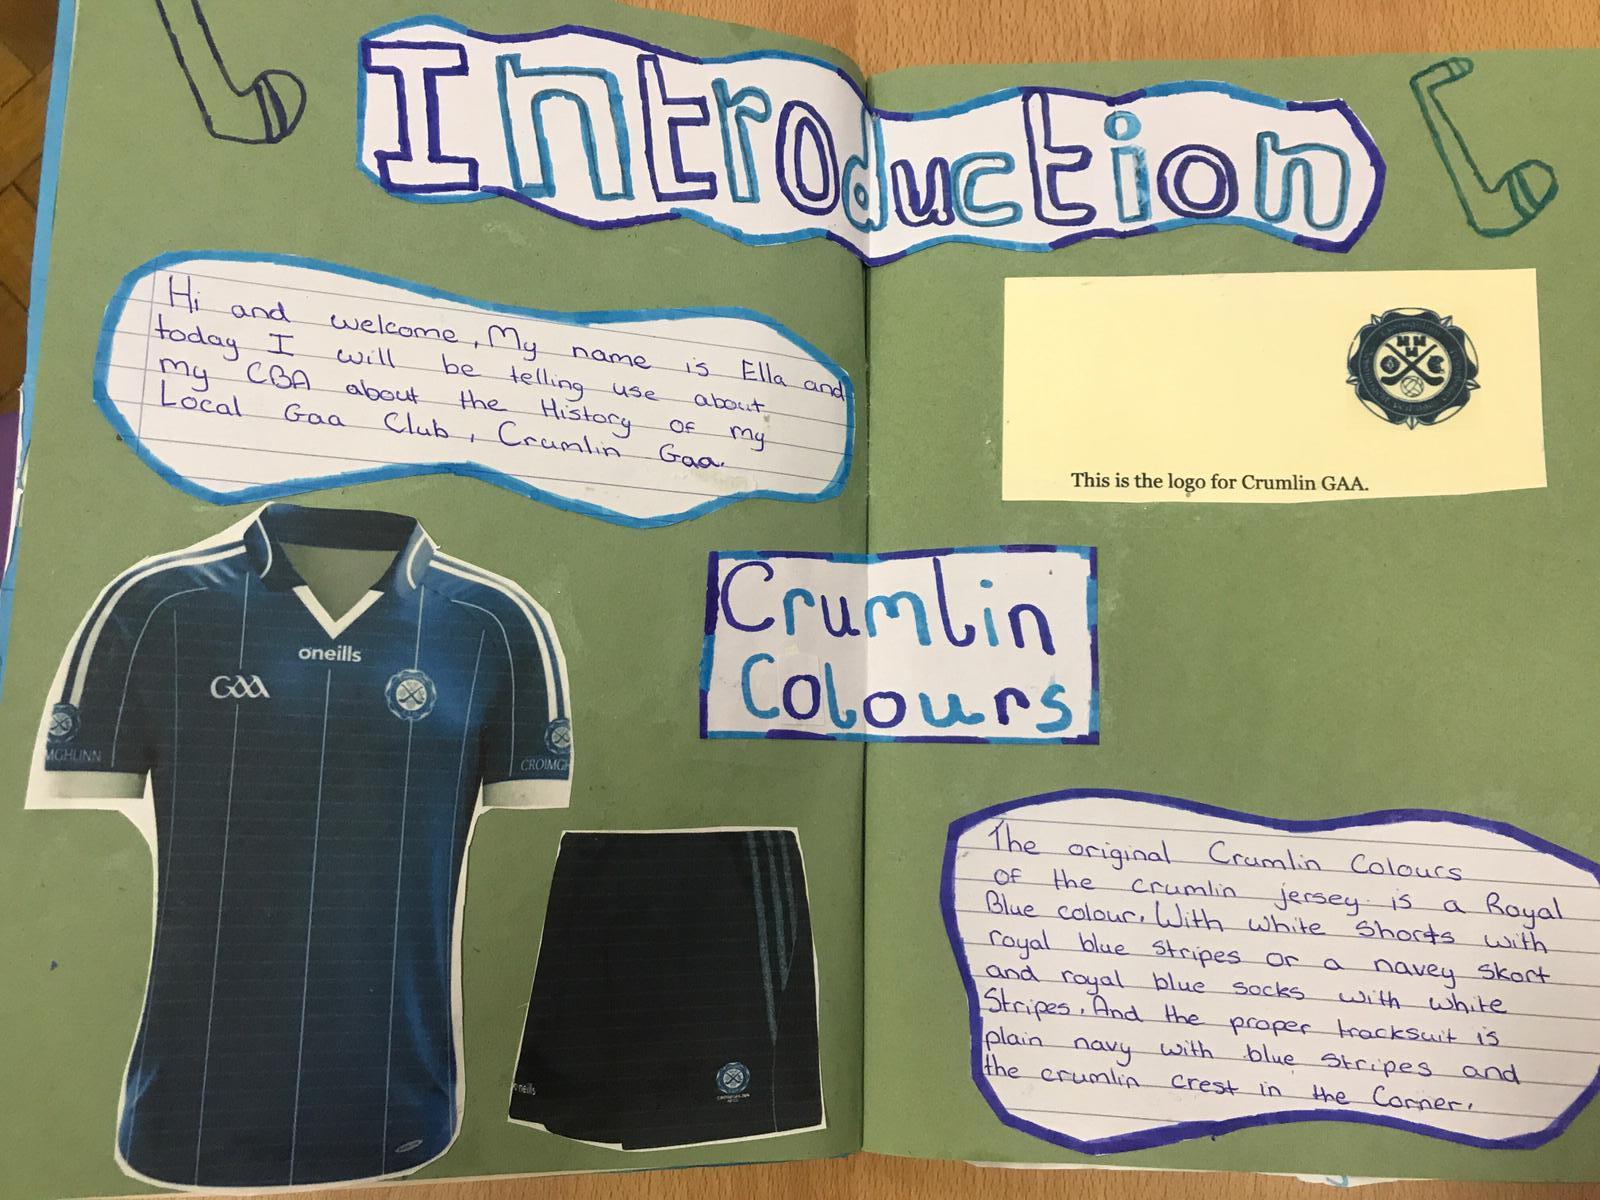 Introduction
Hi and welcome, My name is Ella and
today I will be telling use about
my CBA about the History of my
Local Gaa Club, Crumlin Gaa.
This is the logo for Crumlin GAA.
Crumlin
Colours
oneills
GAA
MGHLINN
CROIMGH
oneills
The original Crumlin Colours
of the crumlin jersey is a Royal
Blue colour. With white Shorts with
royal blue stripes or a navey skort
and royal blue socks with white
Stripes. And the proper tracksuit is
plain navy with blue stripes and
the crumlin crest in the Corner.